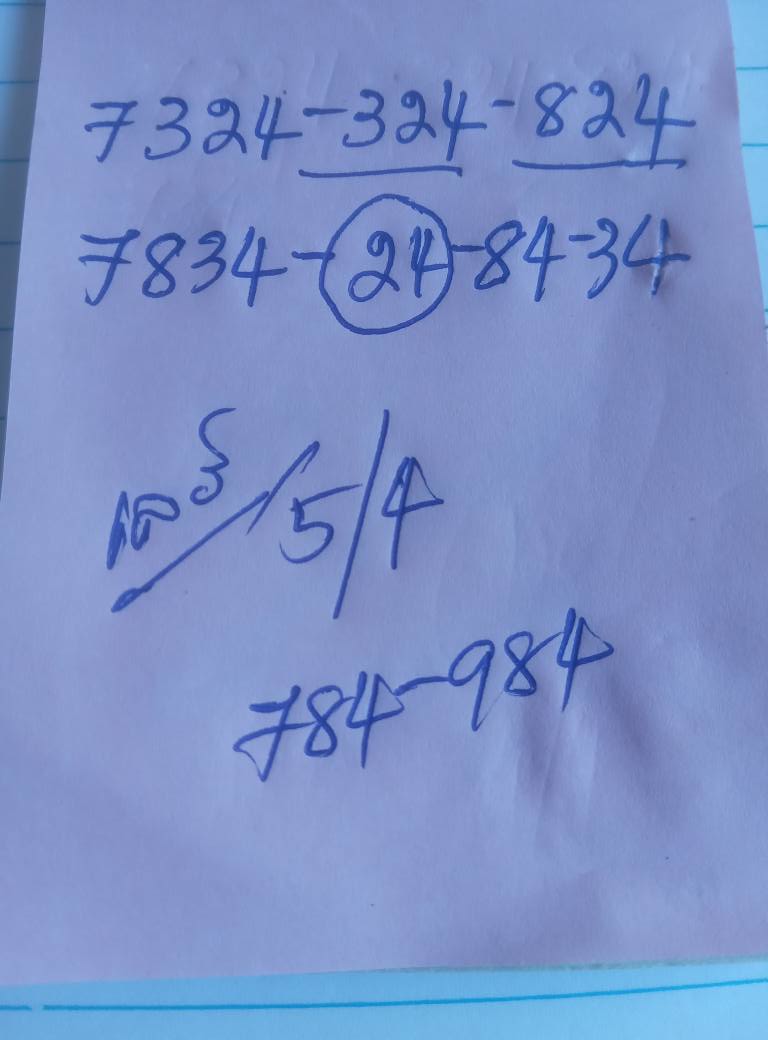 7324-324-824
7834-24-84-34
/5/4
784-984